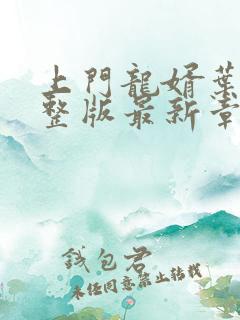 上門龍婿葉
整版最新章
錢包君
未經同意禁止轉載